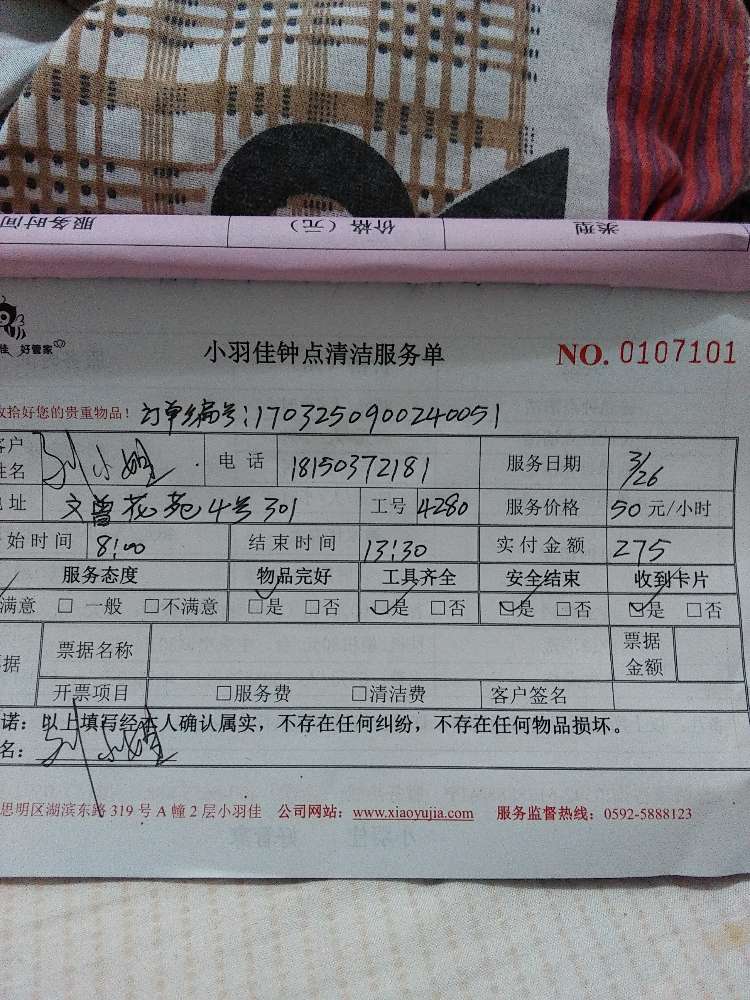 服务时间 价格（元） 类型
佳 好管家
小羽佳钟点清洁服务单 NO. 0107101
收拾好您的贵重物品！ 订单编号：1703250900240051
客户姓名 刘小姐 电话 18150372181 服务日期 3/26
地址 文曾花苑4号301 工号 4280 服务价格 50 元/小时
始时间 8:00 结束时间 13:30 实付金额 275
服务态度 物品完好 工具齐全 安全结束 收到卡片
满意 □ 一般 □不满意 □是 □否 □是 □否 □是 □否 □是 □否
据 票据名称 票据金额
开票项目 □服务费 □清洁费 客户签名
诺：以上填写经本人确认属实，不存在任何纠纷，不存在任何物品损坏。
名： 刘小姐
思明区湖滨东路 319 号 A 幢 2 层小羽佳 公司网站：www.xiaoyujia.com 服务监督热线：0592-5888123